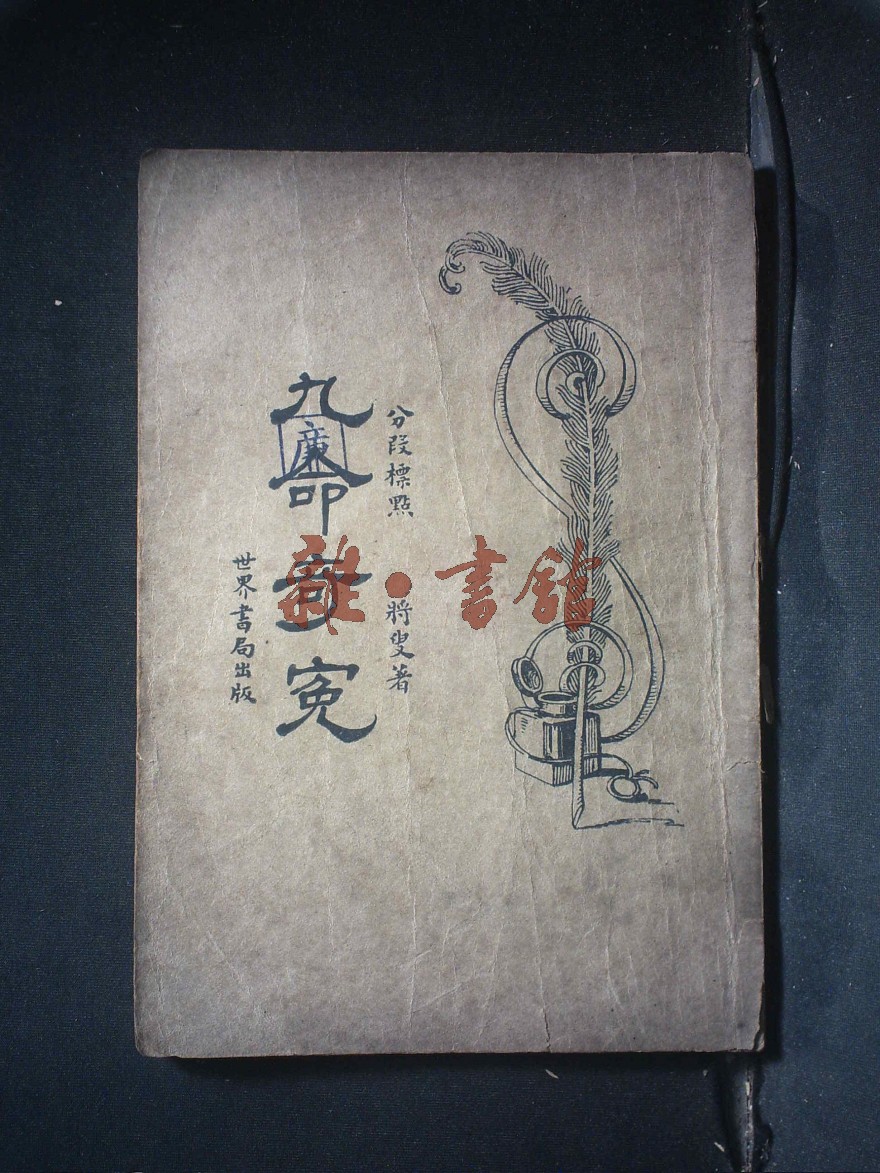 分段標點 將叟著
九命奇冤
世界書局出版
廉
雜·書館